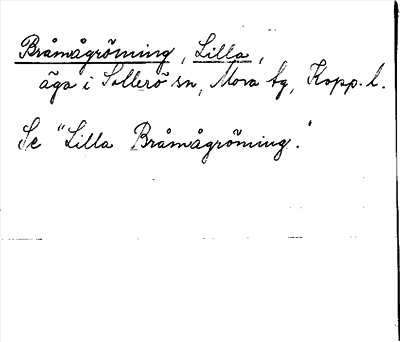 Bråmågröning, Lilla,
äga i Sollerö sn, Mora tg, Kopp. l.
Se "Lilla Bråmågröning."